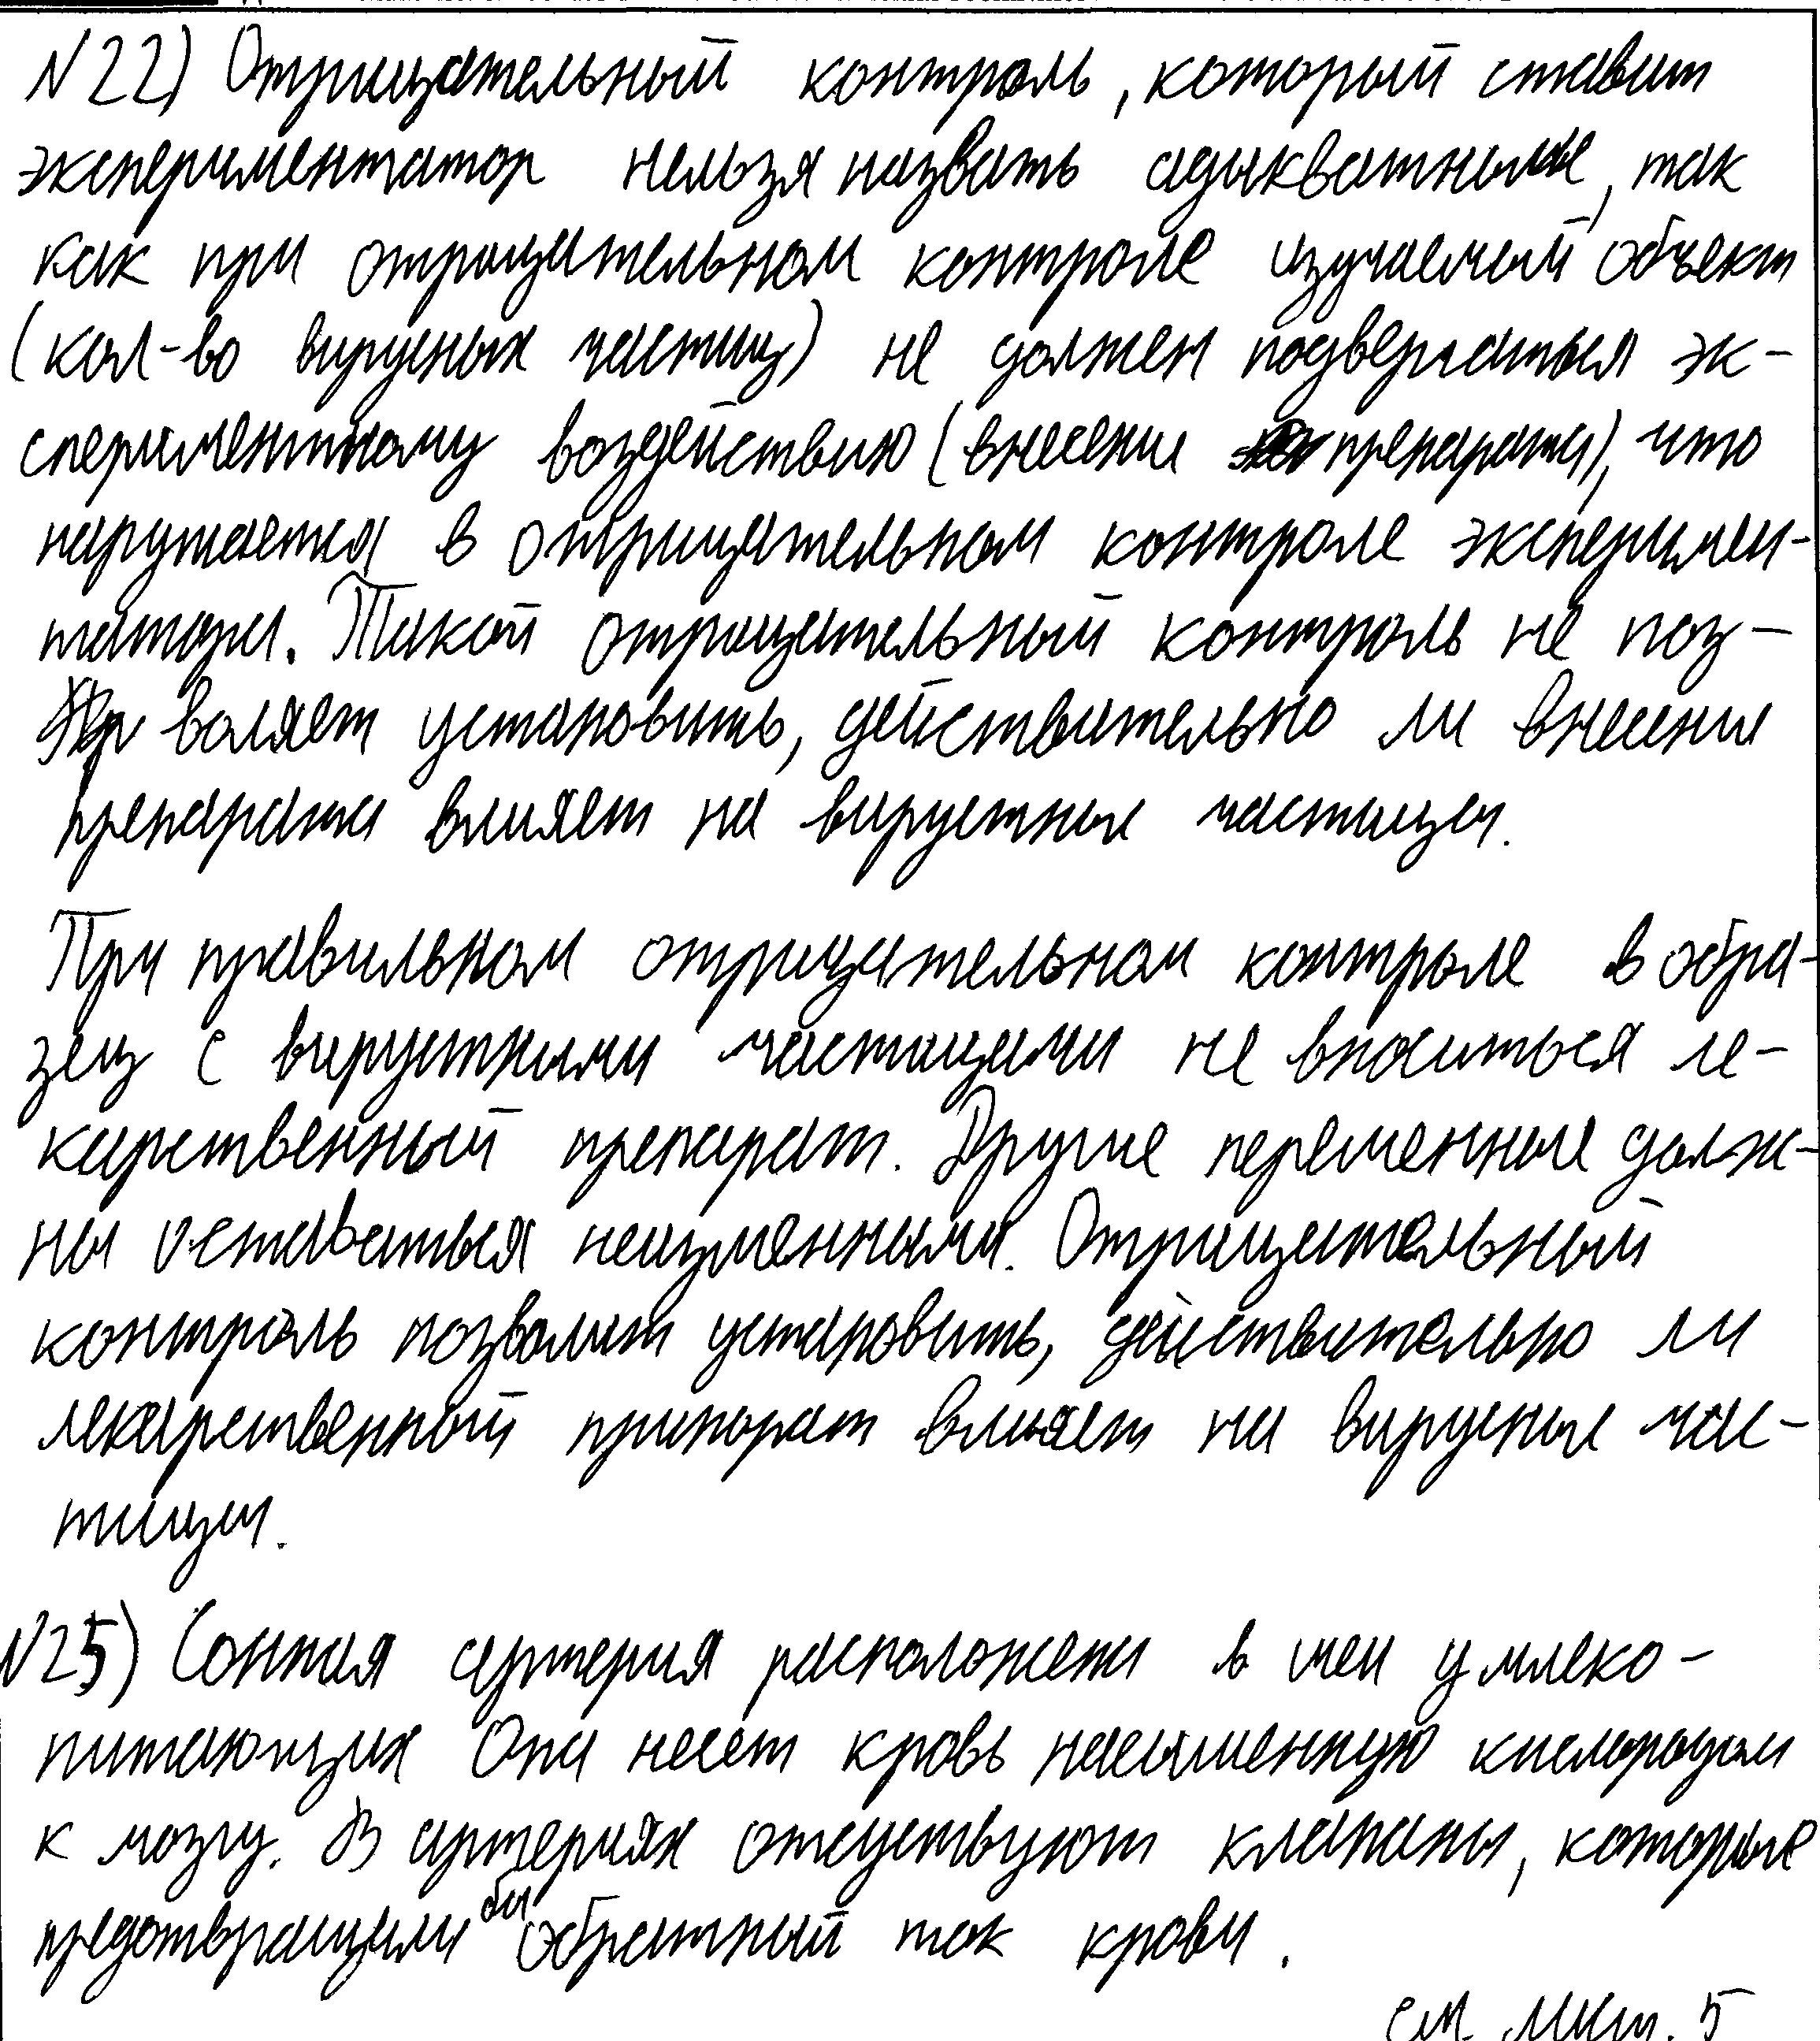 N22) Отрицательный контроль, который ставит
экспериментатор нельзя назвать адыкватным, так
как при отрицательном контроле изучаемый объект
(кол-во вирусных частиц) не должен подвергаться эк-
спериментному воздействию (внесении препарата), что
нарушается в отрицательном контроле эксперимен-
татора. Такой отрицательный контроль не поз-
воляет установить, действительно ли внесении
препарата влияет на вирустные частицы.
При правильном отрицательном контроле в обра-
зец с вирустными частицами не вноситься ле-
карственный препарат. Другие переменные долж-
ны оставаться неизменными. Отрицательный
контроль позволит установить, действительно ли
лекарственный припорат влияет на вирусные час-
тицы.
N25) Сонная артерия расположена в шеи у млеко-
питающих Она несёт кровь насыщенную кислородом
к мозгу. В артериях отсуствуют клапаны, которые
предотвращали бы обратный ток крови.
см. лист. 5